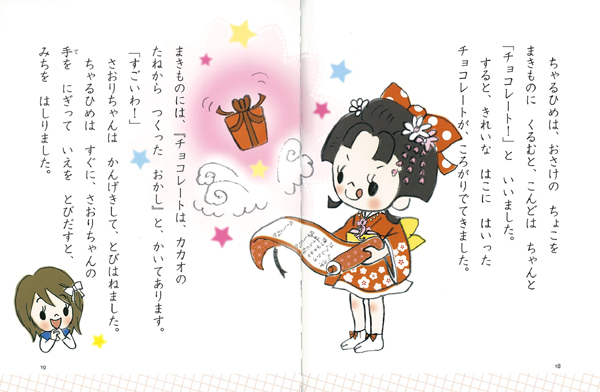 ちゃるひめは、おさけの ちょこを
まきものに くるむと、こんどは ちゃんと
「チョコレート！」と いいました。
すると、きれいな はこに はいった
チョコレートが、ころがりでてきました。
18
まきものには、『チョコレートは、カカオの
たねから つくった おかし』と、かいてあります。
「すごいわ！」
さおりちゃんは かんげきして、とびはねました。
ちゃるひめは すぐに、さおりちゃんの
手を にぎって いえを とびだすと、
みちを はしりました。
て
19